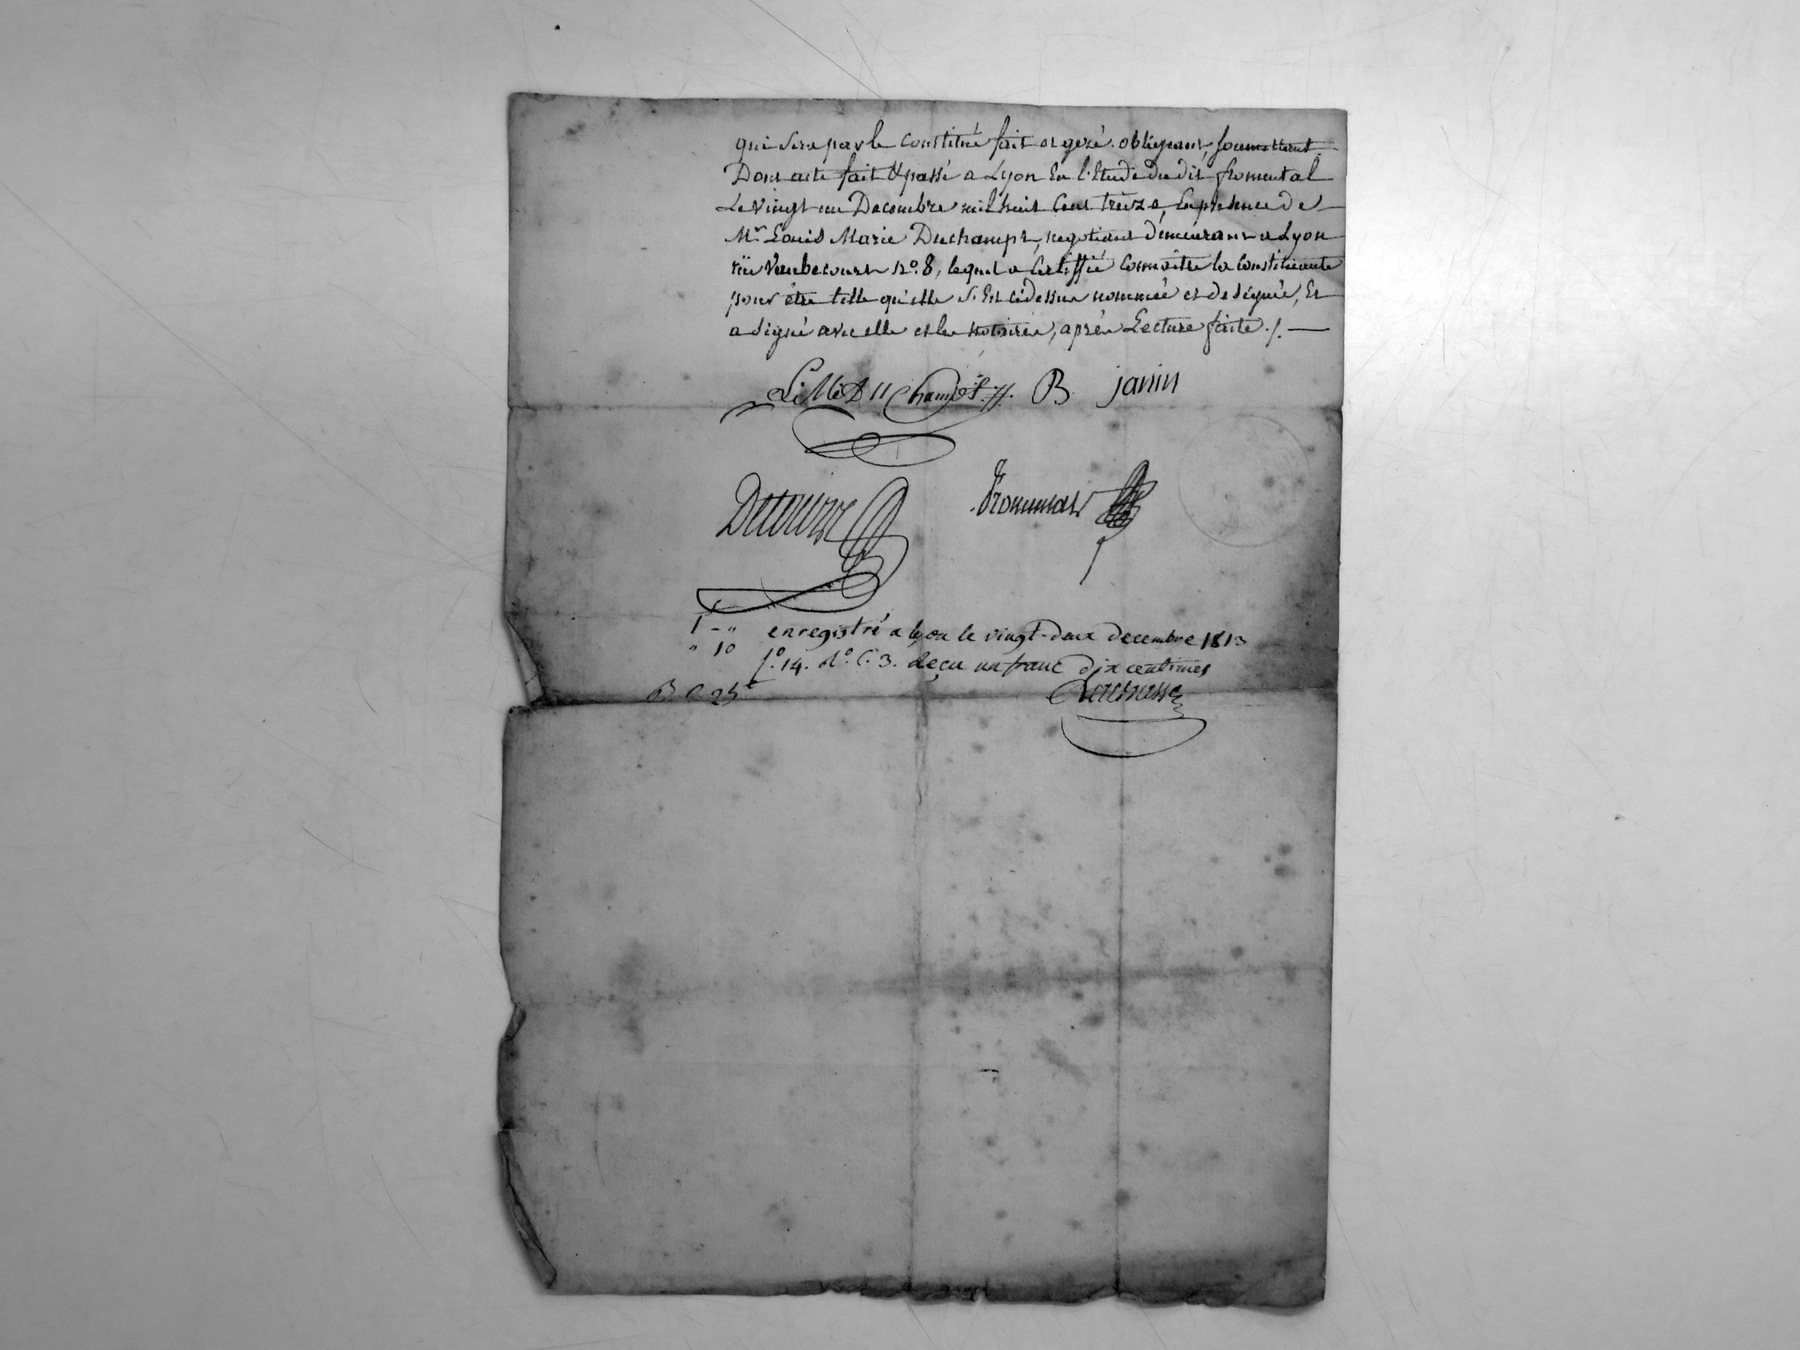 qui sera par le constitué fait et geré. obligeant, soumettant
Dont acte fait & passé a Lyon En l'Etude dudit fromental
Le vingt un Decembre mil huit Cent treize, En presence de
Mr. Louis Marie Duchampt, negotiant demeurant a Lyon
rüe Vaubecourt No. 8, lequel a Certiffié connoitre la constituante
pour être telle qu'elle s'est cidessus nommée et designée, Et
a signé avec elle et les notaires, après Lecture faite ./.
L: M: Duchampt B janin
Detours fromental
1 - " enregistré a lyon le vingt-deux decembre 1813
" 10 fo. 14. Ro. C. 3. Reçu un franc dix centimes
25c